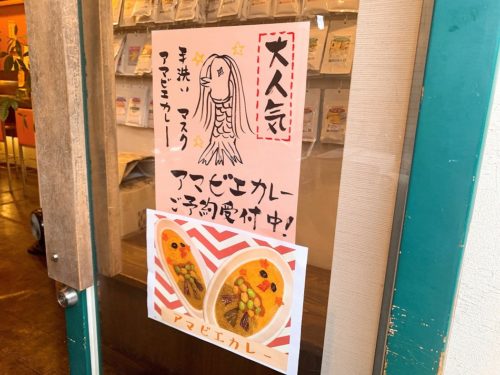 大人気
手洗い マスク
アマビエカレー
アマビエカレー
ご予約受付中!
アマビエカレー